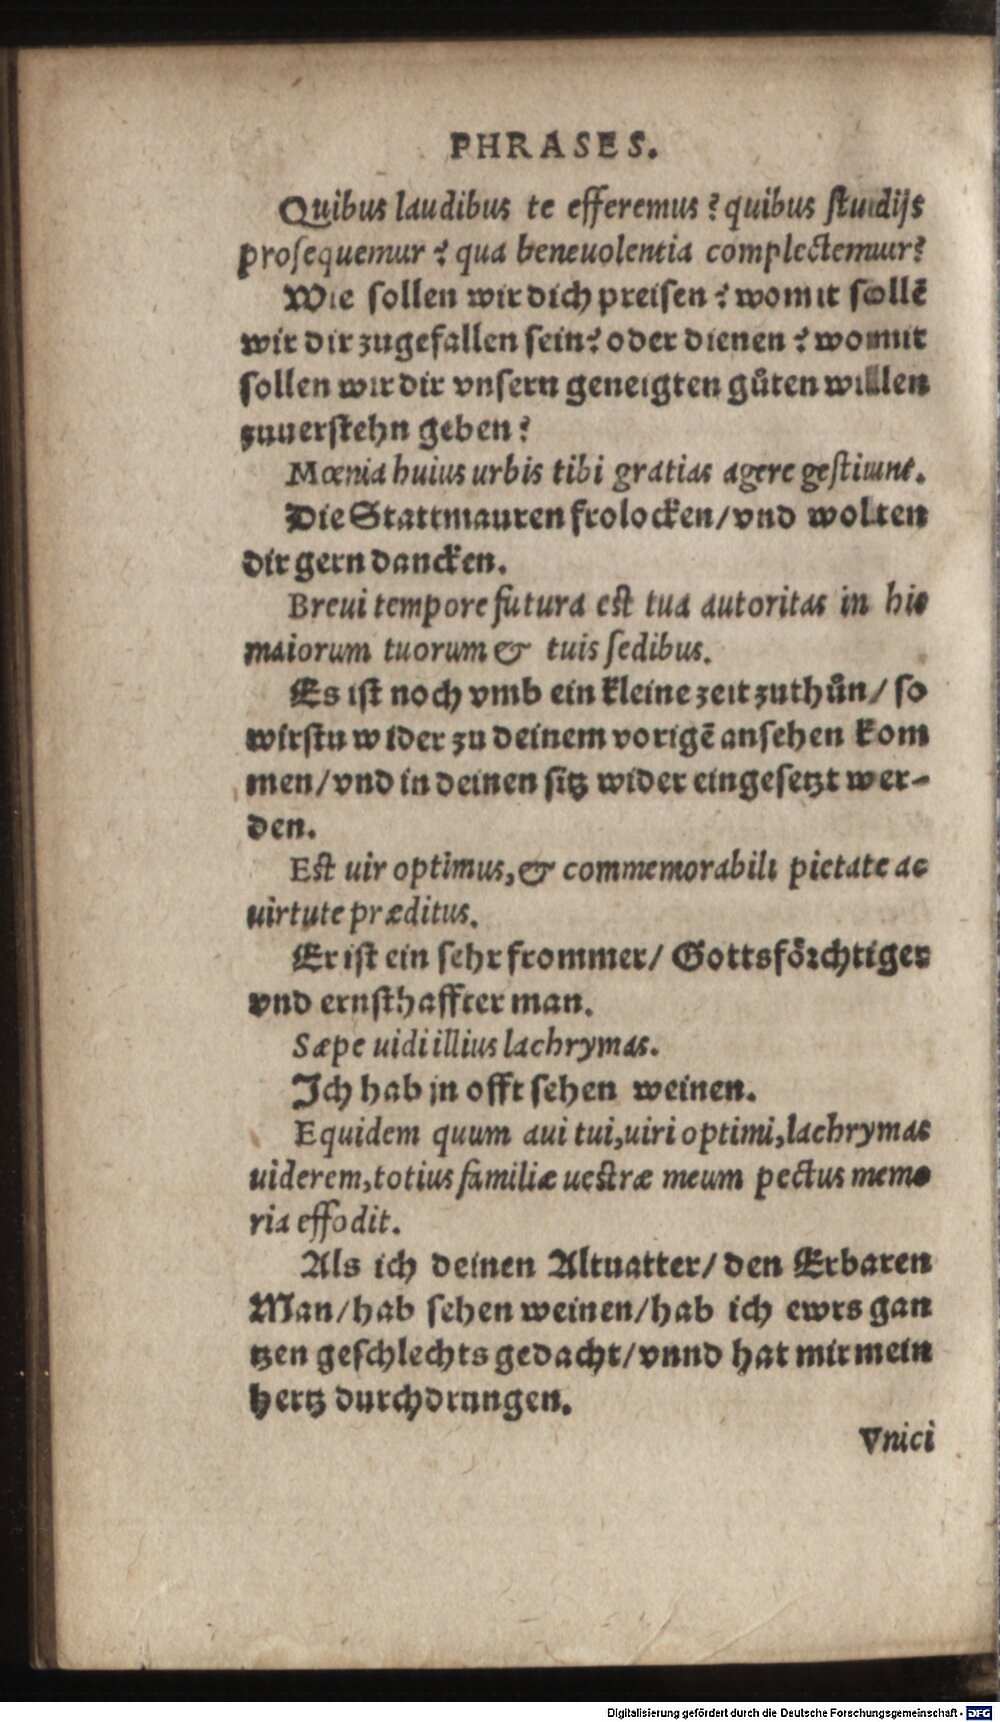 PHRASES.
Quibus laudibus te efferemus? quibus ſtudijs
proſequemur? qua beneuolentia complectemur?
Wie sollen wir dich preisen? womit sollē
wir dir zugefallen sein? oder dienen? womit
sollen wir dir vnsern geneigten gůten willen
zuuerstehn geben?
Mœnia huius urbis tibi gratias agere geſtiunt.
Die Stattmauren frolocken/vnd wolten
dir gern dancken.
Breui tempore futura eſt tua autoritas in his
maiorum tuorum & tuis ſedibus.
Es ist noch vmb ein kleine zeit zuthůn/ so
wirstu wider zu deinem vorigē ansehen kom
men/vnd in deinen sitz wider eingesetzt wer-
den.
Eſt uir optimus, & commemorabili pietate ac
uirtute præditus.
Er ist ein sehr frommer/ Gottsfoͤrchtiger
vnd ernsthaffter man.
Sæpe uidi illius lachrymas.
Ich hab jn offt sehen weinen.
Equidem quum aui tui, uiri optimi, lachrymas
uiderem, totius familiæ ueſtræ meum pectus memo
ria effodit.
Als ich deinen Altuatter/ den Erbaren
Man/hab sehen weinen/hab ich ewrs gan
tzen geschlechts gedacht/vnnd hat mir mein
hertz durchdrungen.
Vnici
Digitalisierung gefördert durch die Deutsche Forschungsgemeinschaft - DFG